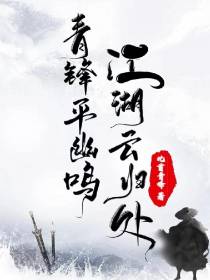 青锋平幽鸣
江湖云归处
著